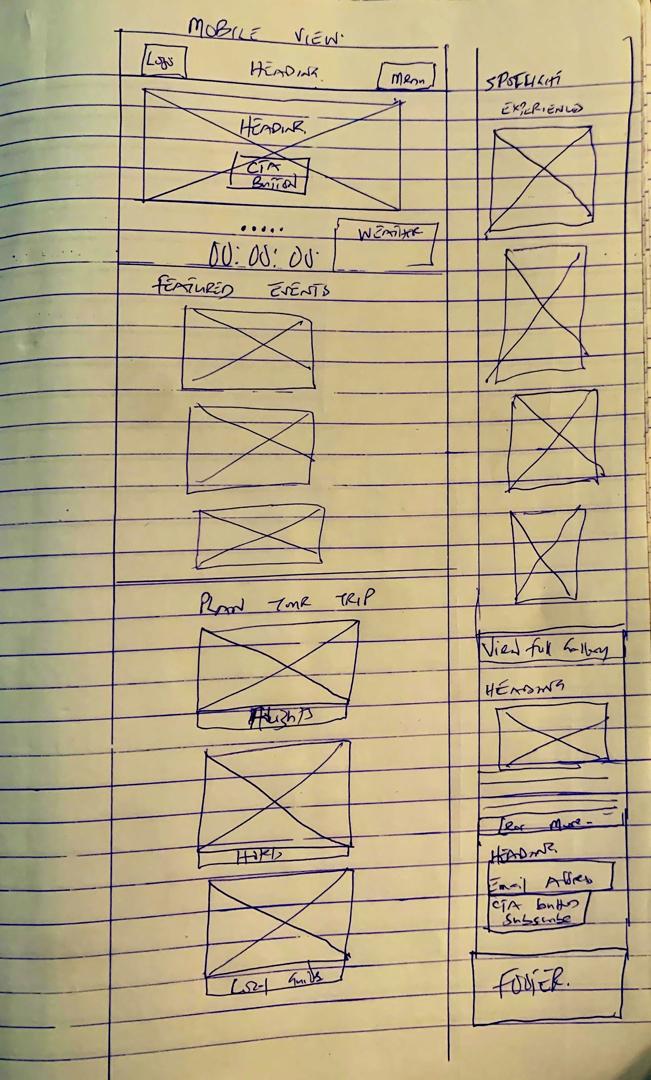 MOBILE VIEW.
Logo
HEADING
Menu
HEADING
CTA
Button
.....
00: 00: 00.
WEATHER
FEATURED EVENTS
PLAN YOUR TRIP
Flights
Hotels
Local Guides
SPOTLIGHT
EXPERIENCED
View full Gallery
HEADING
Learn More.
HEADING
Email Address
CTA button
Subscribe
FOOTER.